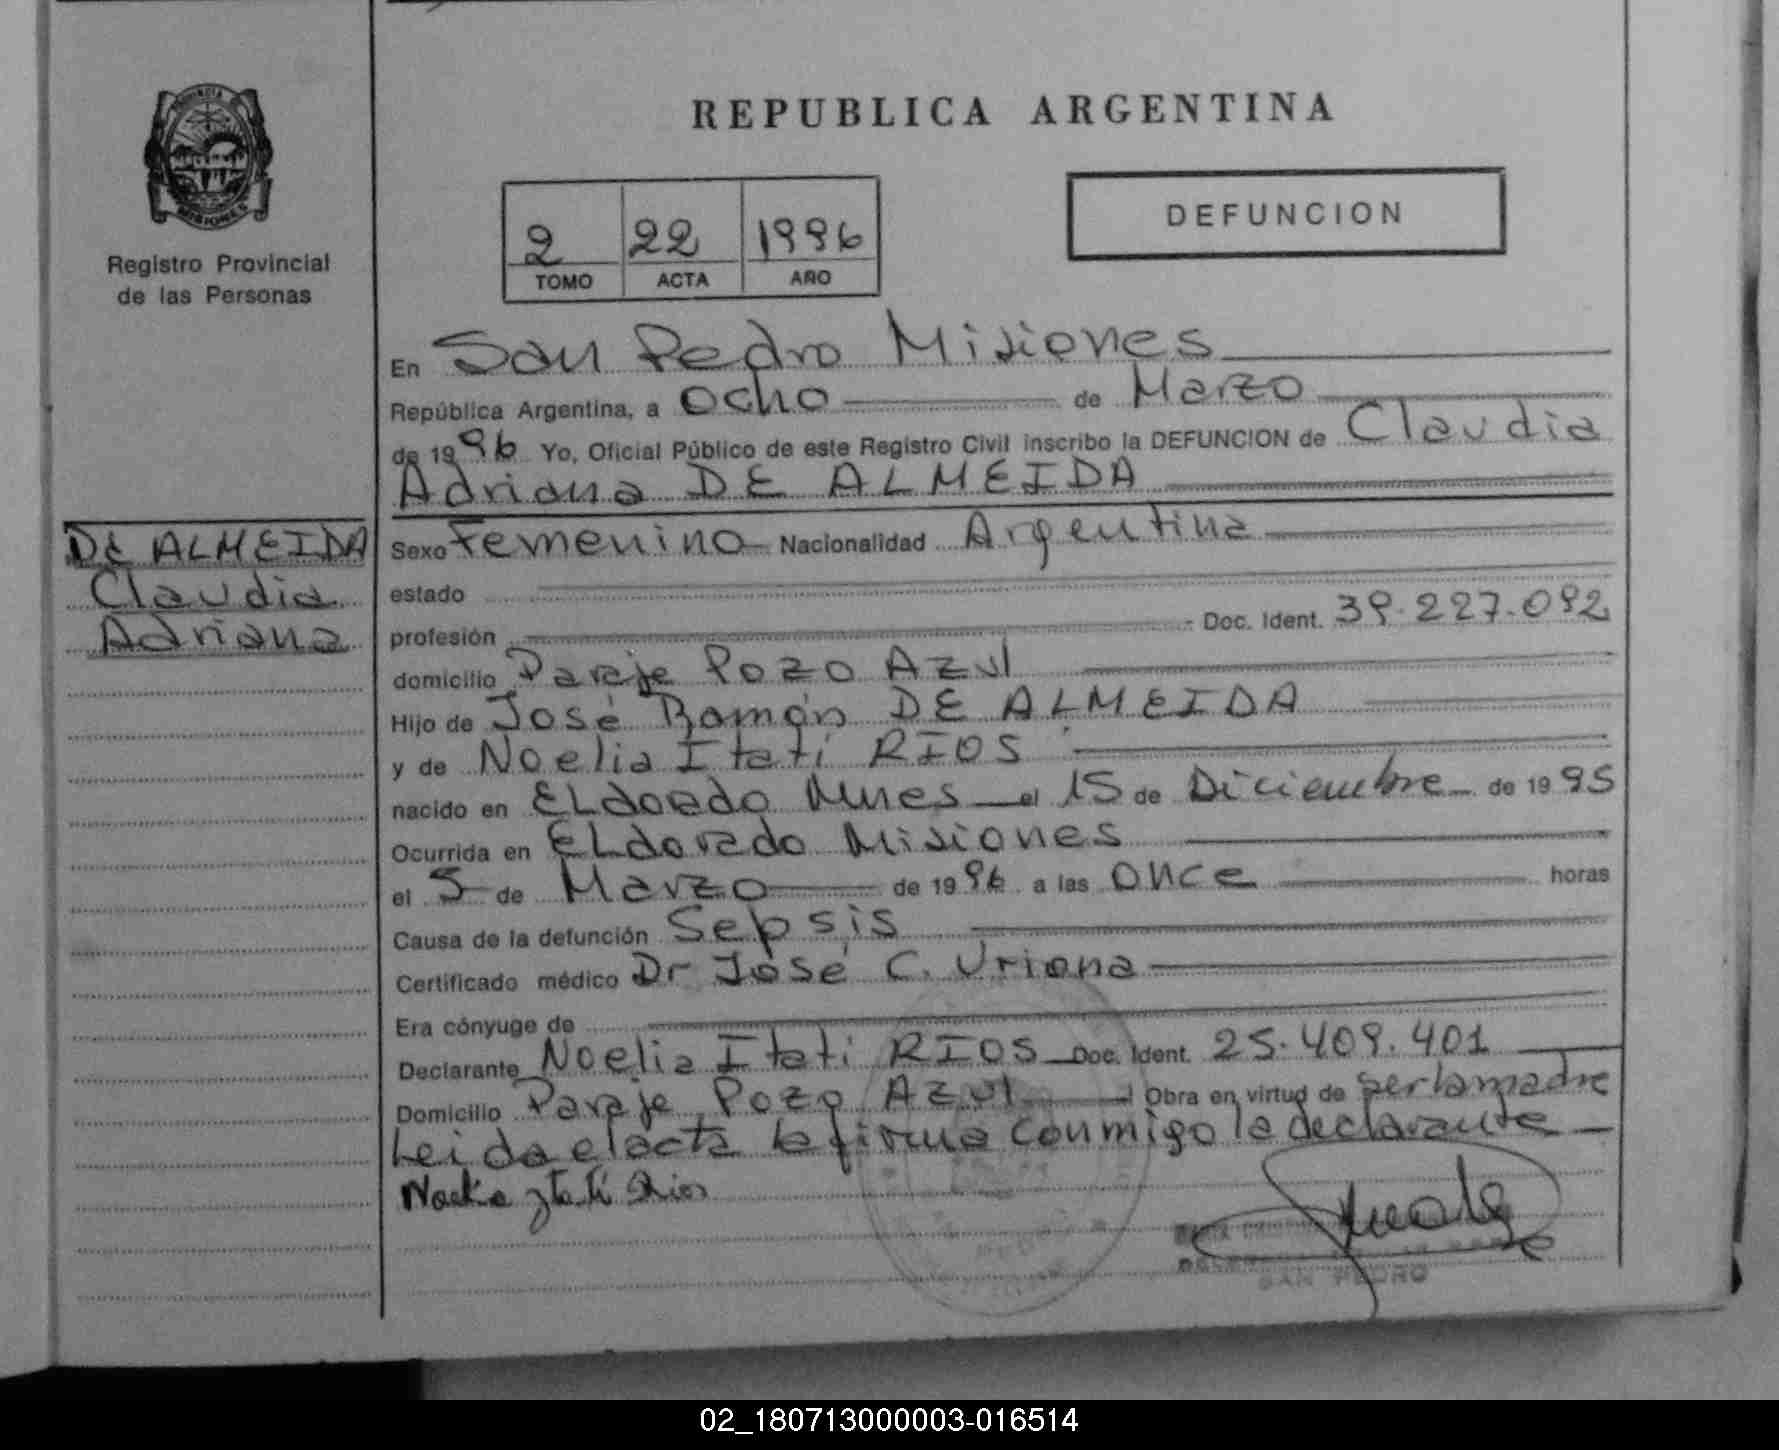 PROVINCIA DE
MISIONES
Registro Provincial
de las Personas
REPUBLICA ARGENTINA
2 22 1996
TOMO ACTA AÑO
DEFUNCION
En San Pedro Misiones
República Argentina, a ocho de Marzo
de 1996 Yo, Oficial Público de este Registro Civil inscribo la DEFUNCION de Claudia
Adriana DE ALMEIDA
DE ALMEIDA
Claudia
Adriana
Sexo Femenino Nacionalidad Argentina
estado
profesión Doc. Ident. 39.227.092
domicilio Paraje Pozo Azul
Hijo de José Ramón DE ALMEIDA
y de Noelia Itatí RIOS
nacido en ELdorado Mnes el 15 de Diciembre de 1995
Ocurrida en ELdorado Misiones
el 5 de Marzo de 1996 a las once horas
Causa de la defunción Sepsis
Certificado médico Dr José C. Uriona
Era cónyuge de
Declarante Noelia Itati RIOS Doc. Ident. 25.409.401
Domicilio Paraje Pozo Azul Obra en virtud de ser la madre
Leida el acta la firma conmigo la declarante
Noelia Itatí Rios
SAN PEDRO
02_180713000003-016514